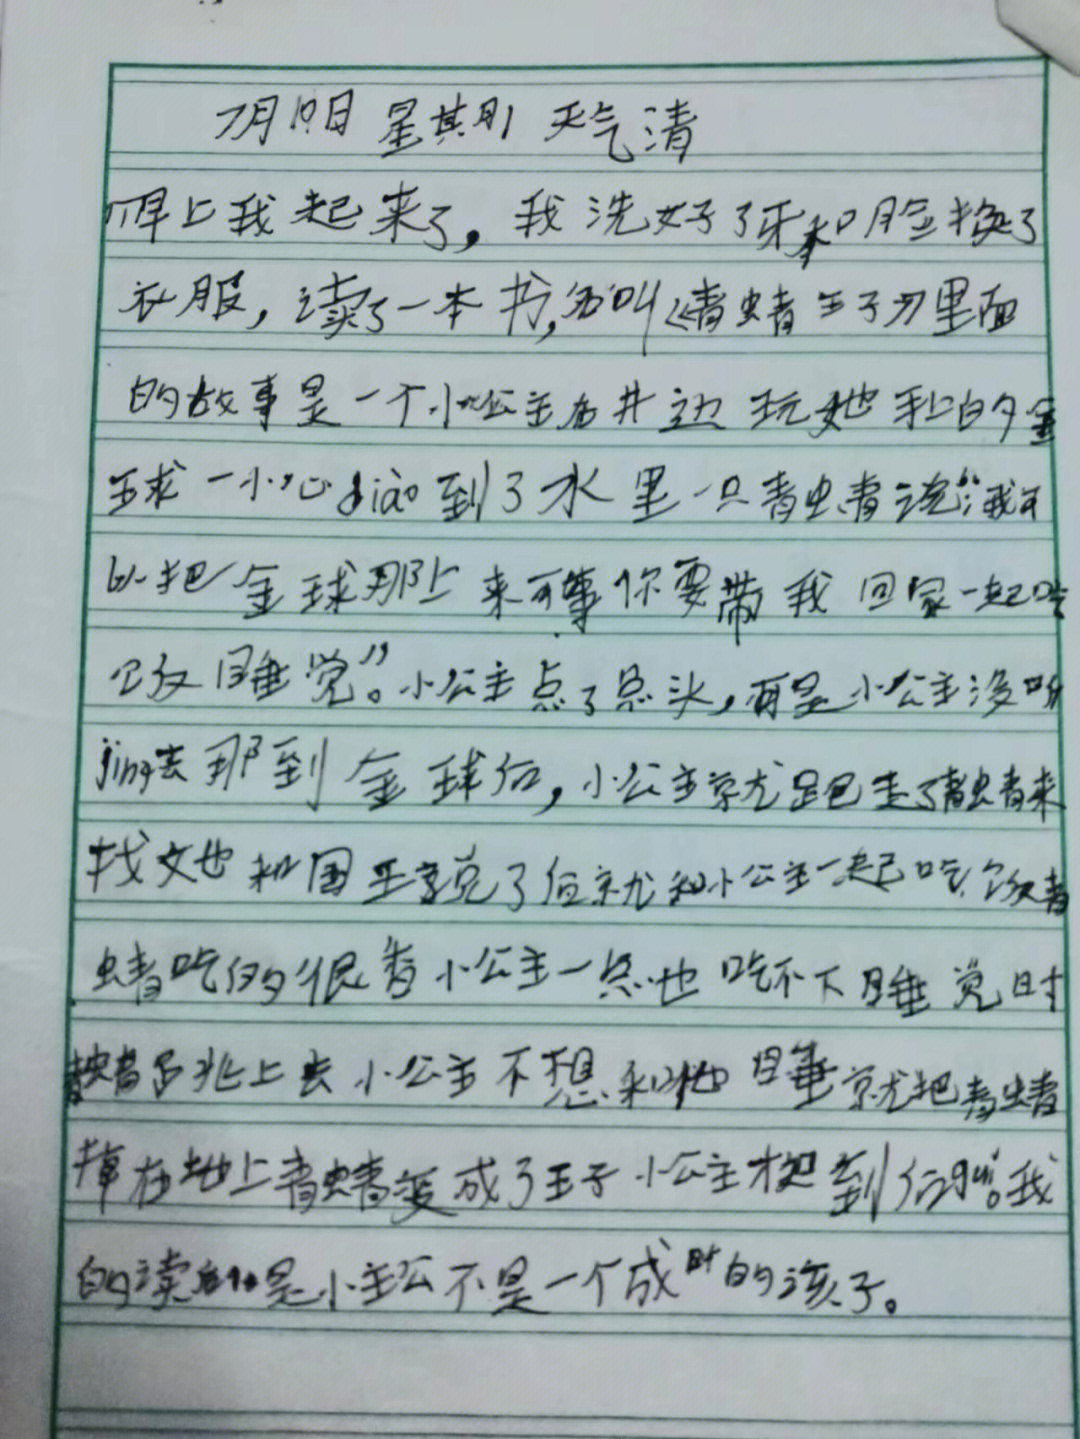 7月10日 星其月1 天气清
早上我起来了，我洗好了牙和脸换了
衣服，读了一本书，名叫《青蜻王子》里面
的故事是一个小公主在井边玩她手上的金
球一小心diào到了水里一只青蜻说“我可
以把金球那上来可事你要带我回家一起吃
饭睡觉”。小公主点了点头，可是小公主没听
jing去那到金球后，小公主就跑走了青蜻来
找她和国王说了后就和小公主一起吃饭青
蜻吃的很香小公主一点也吃不下睡觉时
青蜻兆上去小公主不想和他睡就把青蜻
掉在地上青蜻变成了王子小公主才想到。我
的读是小主公不是一个成时的孩子。